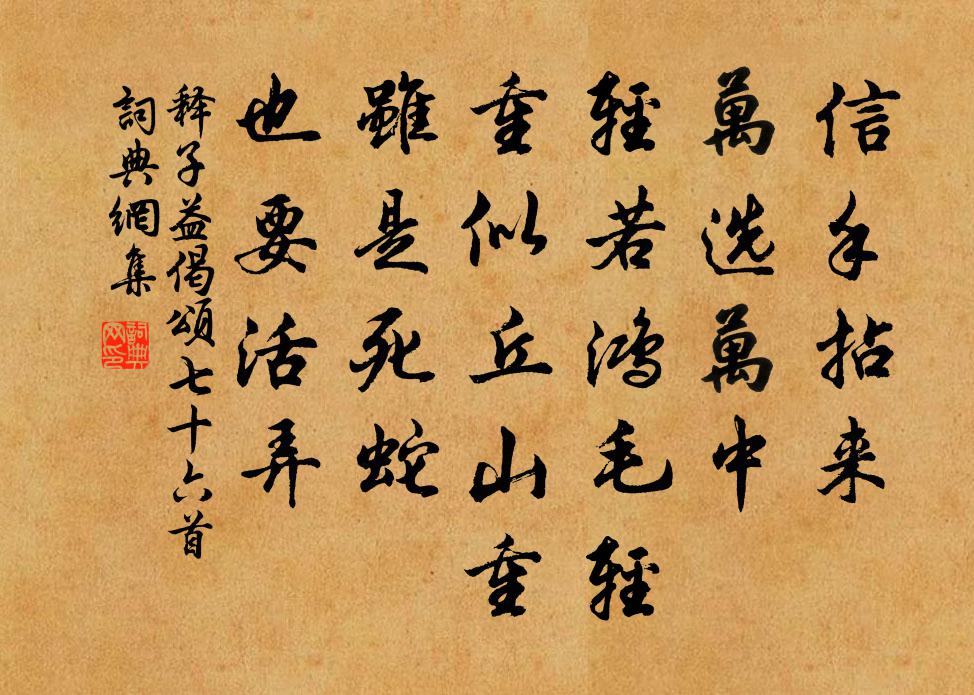 信手拈来
萬选萬中
輕若鸿毛輕
重似丘山重
雖是死蛇
也要活弄
释子益偈頌七十六首
詞典網集
詞典网印